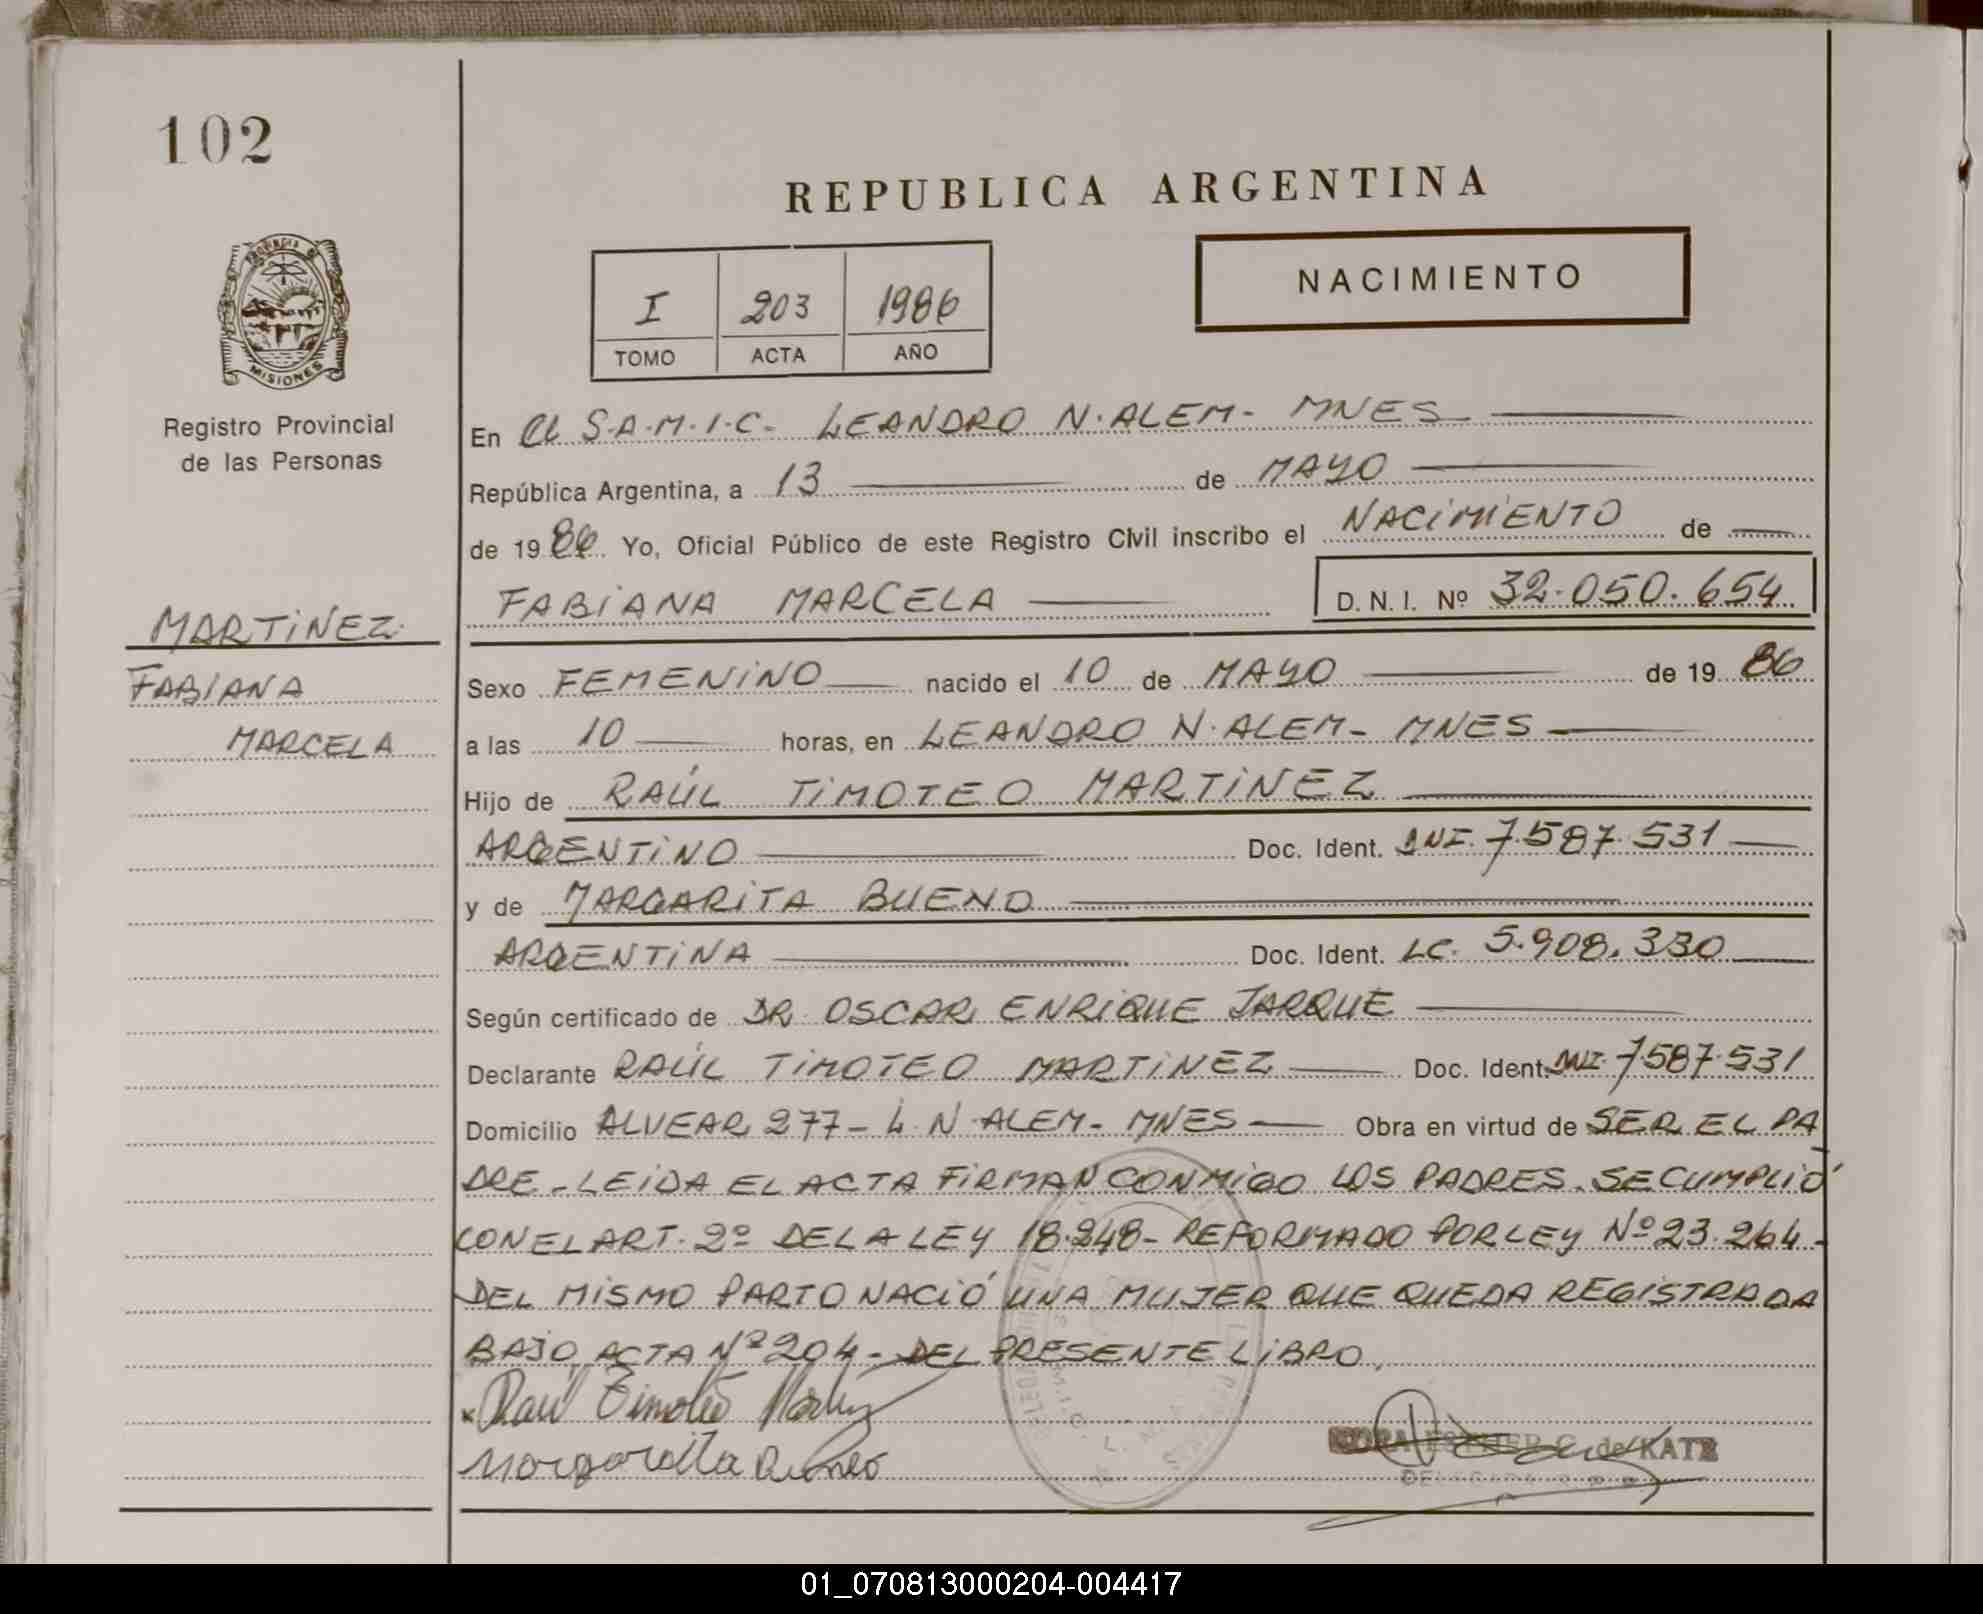 102
REPUBLICA ARGENTINA
PROVINCIA D
MISIONES
Registro Provincial
de las Personas
I 203 1986
TOMO ACTA AÑO
NACIMIENTO
En el S.A.M.I.C. LEANDRO N. ALEM - MNES
República Argentina, a 13 de MAYO
de 1986. Yo, Oficial Público de este Registro Civil inscribo el NACIMIENTO de
FABIANA MARCELA D.N.I. Nº 32.050.654
MARTINEZ
FABIANA
MARCELA
Sexo FEMENINO nacido el 10 de MAYO de 1986
a las 10 horas, en LEANDRO N. ALEM - MNES
Hijo de RAÚL TIMOTEO MARTINEZ
ARGENTINO Doc. Ident. DNI. 7.587.531
y de MARGARITA BUENO
ARGENTINA Doc. Ident. LC. 5.908.330
Según certificado de DR. OSCAR ENRIQUE JARQUE
Declarante RAÚL TIMOTEO MARTINEZ Doc. Ident. DNI. 7.587.531
Domicilio ALVEAR 277 - L. N. ALEM - MNES Obra en virtud de SER EL PA
DRE - LEIDA EL ACTA FIRMAN CONMIGO LOS PADRES. SE CUMPLIÓ
CON EL ART. 2º DE LA LEY 18.248 - REFORMADO POR LEY Nº 23.264 -
DEL MISMO PARTO NACIÓ UNA MUJER QUE QUEDA REGISTRADA
BAJO ACTA Nº 204 - DEL PRESENTE LIBRO.
Raul Timoteo
Margarita Bueno
ESTHER C. de KATZ
DELEGADA
01_070813000204-004417